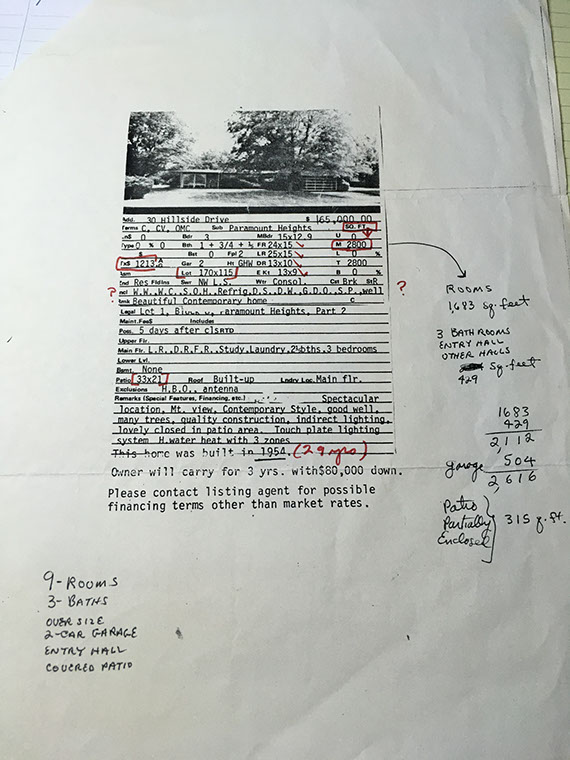 Add. 30 Hillside Drive $ 165,000.00
Terms C, CV, OMC Sub Paramount Heights SQ. FT.
$ 0 Bdr 3 MBdr 15x12.9 U 0
Type 0 % 0 Bth 1 + 3/4 + ½ FR 24x15 M 2800
$ Bst 0 Fpl 2 LR 25x15 L 0
Tx$ 1213 Gar 2 Ht GHW DR 13x10 T 2800
Lot 170x115 E Kt 13x9 B 0 %
Res Swr NW L.S. Wtr Consol. Cst Brk
? W.W.,W.C.,S.O.H.,Refrig,D.S.,D.W.,G.D.O.,S.P.,well ?
Beautiful Contemporary home C
Legal Lot 1, Paramount Heights, Part 2
Maint.Fee$ Includes
Poss. 5 days after clsg
Upper Flr.
Main Flr. L.R.,D.R.F.R.,Study,Laundry,2½bths,3 bedrooms
Lower Lvl.
Bsmt. None
Patio 33x21 Roof Built-up Lndry Loc. Main flr.
Exclusions H.B.O., antenna
Remarks (Special Features, Financing, etc.) Spectacular
location, Mt. view, Contemporary Style, good well,
many trees, quality construction, indirect lighting,
lovely closed in patio area. Touch plate lighting
system H.water heat with 3 zones
This home was built in 1954. (29 yrs)
Owner will carry for 3 yrs. with $80,000 down.
Please contact listing agent for possible
financing terms other than market rates.
ROOMS
1,683 sq. feet
3 BATHROOMS
ENTRY HALL
OTHER HALLS
sq. feet
429
1683
429
2,112
garage 504
2,616
Patio
Partially
Enclosed
315 sq. ft.
9-ROOMS
3-BATHS
OVER SIZE
2-CAR GARAGE
ENTRY HALL
COVERED PATIO